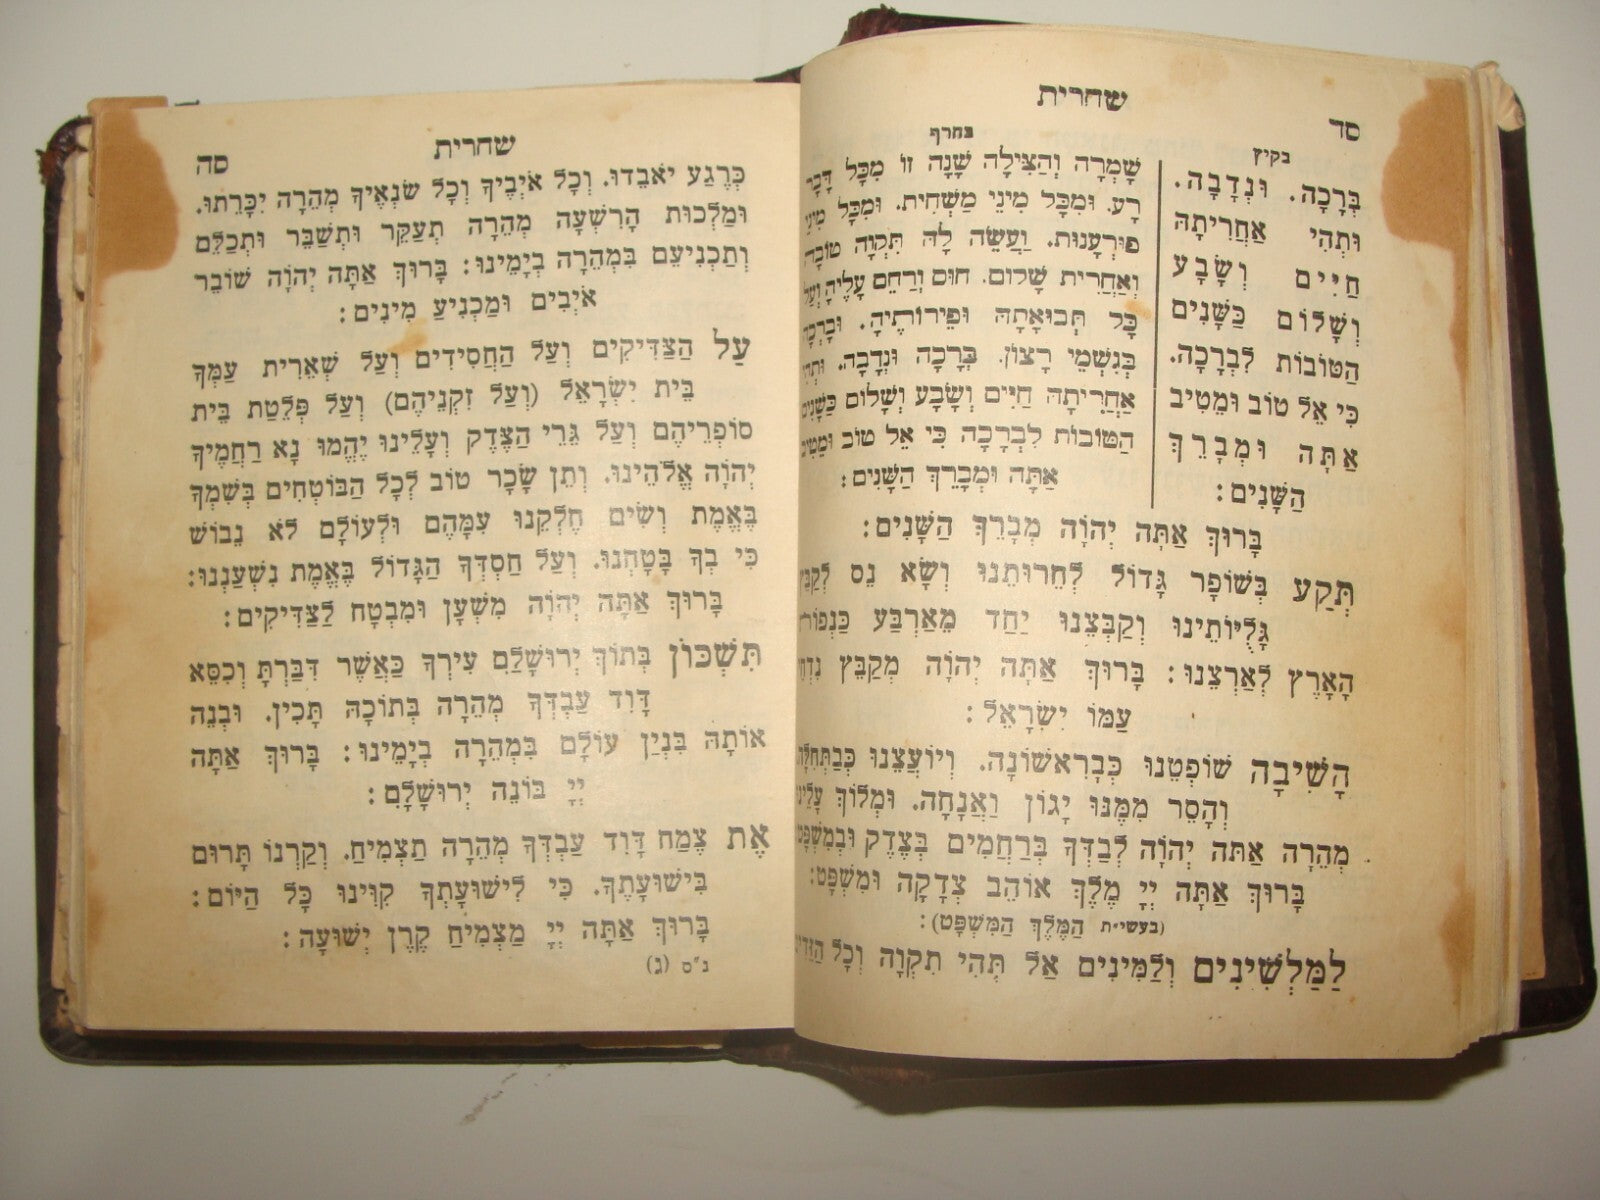 שחרית
סד
בקיץ
בְּרָכָה. וּנְדָבָה.
וּתְהִי אַחֲרִיתָהּ
חַיִּים וְשָׂבָע
וְשָׁלוֹם כַּשָּׁנִים
הַטּוֹבוֹת לִבְרָכָה.
כִּי אֵל טוֹב וּמֵטִיב
אַתָּה וּמְבָרֵךְ
הַשָּׁנִים:
בחרף
שָׁמְרָה וְהַצִּילָה שָׁנָה זוֹ מִכָּל דָּבָר
רָע. וּמִכָּל מִינֵי מַשְׁחִית. וּמִכָּל מִינֵי
פּוּרְעָנוּת. וַעֲשֵׂה לָהּ תִּקְוָה טוֹבָה
וְאַחֲרִית שָׁלוֹם. חוּס וְרַחֵם עָלֶיהָ וְעַל
כָּל תְּבוּאָתָהּ וּפֵירוֹתֶיהָ. וּבָרְכָהּ
בְּגִשְׁמֵי רָצוֹן. בְּרָכָה וּנְדָבָה. וּתְהִי
אַחֲרִיתָהּ חַיִּים וְשָׂבָע וְשָׁלוֹם כַּשָּׁנִים
הַטּוֹבוֹת לִבְרָכָה כִּי אֵל טוֹב וּמֵטִיב
אַתָּה וּמְבָרֵךְ הַשָּׁנִים:
בָּרוּךְ אַתָּה יְהוָֹה מְבָרֵךְ הַשָּׁנִים:
תְּקַע בְּשׁוֹפָר גָּדוֹל לְחֵרוּתֵנוּ וְשָׂא נֵס לְקַבֵּץ
גָּלֻיּוֹתֵינוּ וְקַבְּצֵנוּ יַחַד מֵאַרְבַּע כַּנְפוֹת
הָאָרֶץ לְאַרְצֵנוּ: בָּרוּךְ אַתָּה יְהוָֹה מְקַבֵּץ נִדְחֵי
עַמּוֹ יִשְׂרָאֵל:
הָשִׁיבָה שׁוֹפְטֵנוּ כְּבָרִאשׁוֹנָה. וְיוֹעֲצֵנוּ כְּבַתְּחִלָּה.
וְהָסֵר מִמֶּנּוּ יָגוֹן וַאֲנָחָה. וּמְלוֹךְ עָלֵינוּ
מְהֵרָה אַתּה יְהוָֹה לְבַדְּךָ בְּרַחֲמִים בְּצֶדֶק וּבְמִשְׁפָּט
בָּרוּךְ אַתָּה יְיָ מֶלֶךְ אוֹהֵב צְדָקָה וּמִשְׁפָּט:
(בעשי״ת הַמֶּלֶךְ הַמִּשְׁפָּט):
לַמַּלְשִׁינִים וְלַמִּינִים אַל תְּהִי תִקְוָה וְכָל הַזֵּדִים
שחרית
סה
כְּרֶגַע יֹאבֵדוּ. וְכָל אֹיְבֶיךָ וְכָל שֹׂנְאֶיךָ מְהֵרָה יִכָּרֵתוּ.
וּמַלְכוּת הָרִשְׁעָה מְהֵרָה תְעַקֵּר וּתְשַׁבֵּר וּתְכַלֵּם
וְתַכְנִיעֵם בִּמְהֵרָה בְיָמֵינוּ: בָּרוּךְ אַתָּה יְהוָֹה שׁוֹבֵר
אֹיְבִים וּמַכְנִיעַ מִינִים:
עַל הַצַּדִּיקִים וְעַל הַחֲסִידִים וְעַל שְׁאֵרִית עַמְּךָ
בֵּית יִשְׂרָאֵל (וְעַל זִקְנֵיהֶם) וְעַל פְּלֵטַת בֵּית
סוֹפְרֵיהֶם וְעַל גֵּרֵי הַצֶּדֶק וְעָלֵינוּ יֶהֱמוּ נָא רַחֲמֶיךָ
יְהוָֹה אֱלֹהֵינוּ. וְתֵן שָׂכָר טוֹב לְכָל הַבּוֹטְחִים בְּשִׁמְךָ
בֶּאֱמֶת וְשִׂים חֶלְקֵנוּ עִמָּהֶם וּלְעוֹלָם לֹא נֵבוֹשׁ
כִּי בְךָ בָּטָחְנוּ. וְעַל חַסְדְּךָ הַגָּדוֹל בֶּאֱמֶת נִשְׁעָנְנוּ:
בָּרוּךְ אַתָּה יְהוָֹה מִשְׁעָן וּמִבְטָח לַצַּדִּיקִים:
תִּשְׁכּוֹן בְּתוֹךְ יְרוּשָׁלַםִ עִירְךָ כַּאֲשֶׁר דִּבַּרְתָּ וְכִסֵּא
דָוִד עַבְדְּךָ מְהֵרָה בְּתוֹכָהּ תָּכִין. וּבְנֵה
אוֹתָהּ בִּנְיַן עוֹלָם בִּמְהֵרָה בְיָמֵינוּ: בָּרוּךְ אַתָּה
יְיָ בּוֹנֵה יְרוּשָׁלָםִ:
אֶת צֶמַח דָּוִד עַבְדְּךָ מְהֵרָה תַצְמִיחַ. וְקַרְנוֹ תָּרוּם
בִּישׁוּעָתֶךָ. כִּי לִישׁוּעָתְךָ קִוִּינוּ כָּל הַיּוֹם:
בָּרוּךְ אַתָּה יְיָ מַצְמִיחַ קֶרֶן יְשׁוּעָה:
נ״ס (ג)